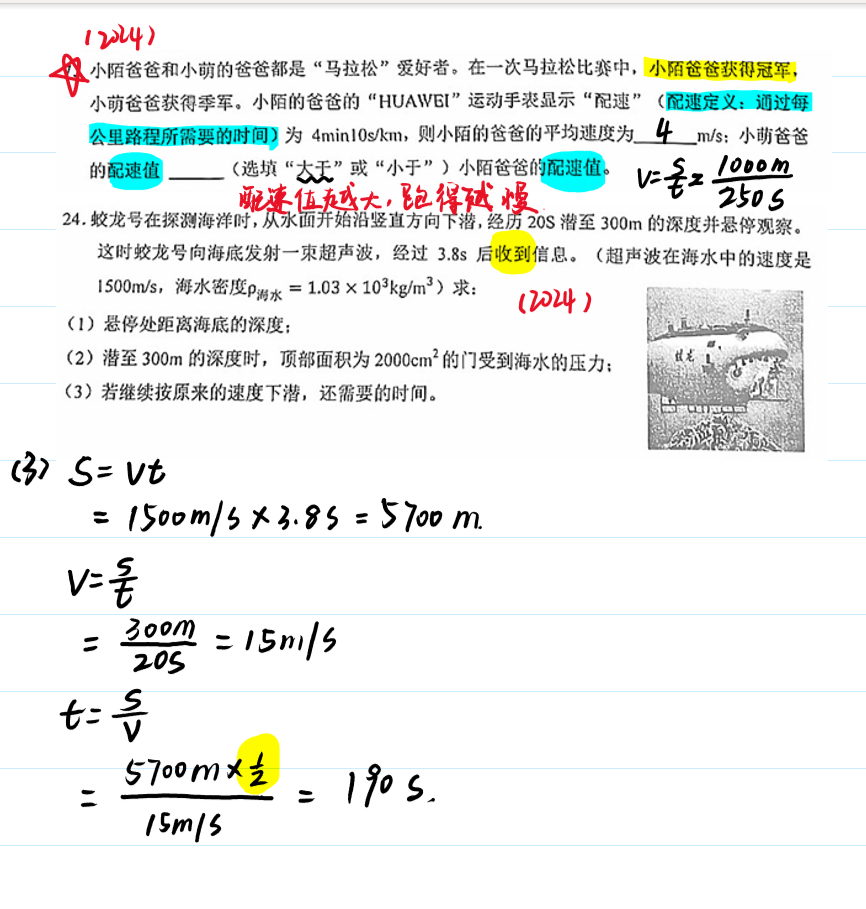 (2024)
小陌爸爸和小萌的爸爸都是“马拉松”爱好者。在一次马拉松比赛中，小陌爸爸获得冠军，
小萌爸爸获得季军。小陌的爸爸的“HUAWEI”运动手表显示“配速”（配速定义：通过每
公里路程所需要的时间）为 4min10s/km，则小陌的爸爸的平均速度为 4 m/s；小萌爸爸
的配速值 ______ （选填“大于”或“小于”）小陌爸爸的配速值。
V=S/t=1000m/250s
配速值越大，跑得越慢
24. 蛟龙号在探测海洋时，从水面开始沿竖直方向下潜，经历 20S 潜至 300m 的深度并悬停观察。
这时蛟龙号向海底发射一束超声波，经过 3.8s 后收到信息。（超声波在海水中的速度是
1500m/s，海水密度ρ海水 = 1.03 × 10³kg/m³）求：
(2024)
（1）悬停处距离海底的深度；
（2）潜至 300m 的深度时，顶部面积为 2000cm² 的门受到海水的压力；
（3）若继续按原来的速度下潜，还需要的时间。
蛟龙
(3) S= vt
= 1500m/s × 3.8s = 5700 m.
V=S/t
= 300m/20s = 15m/s
t= S/V
= 5700m×1/2 / 15m/s = 190 s.